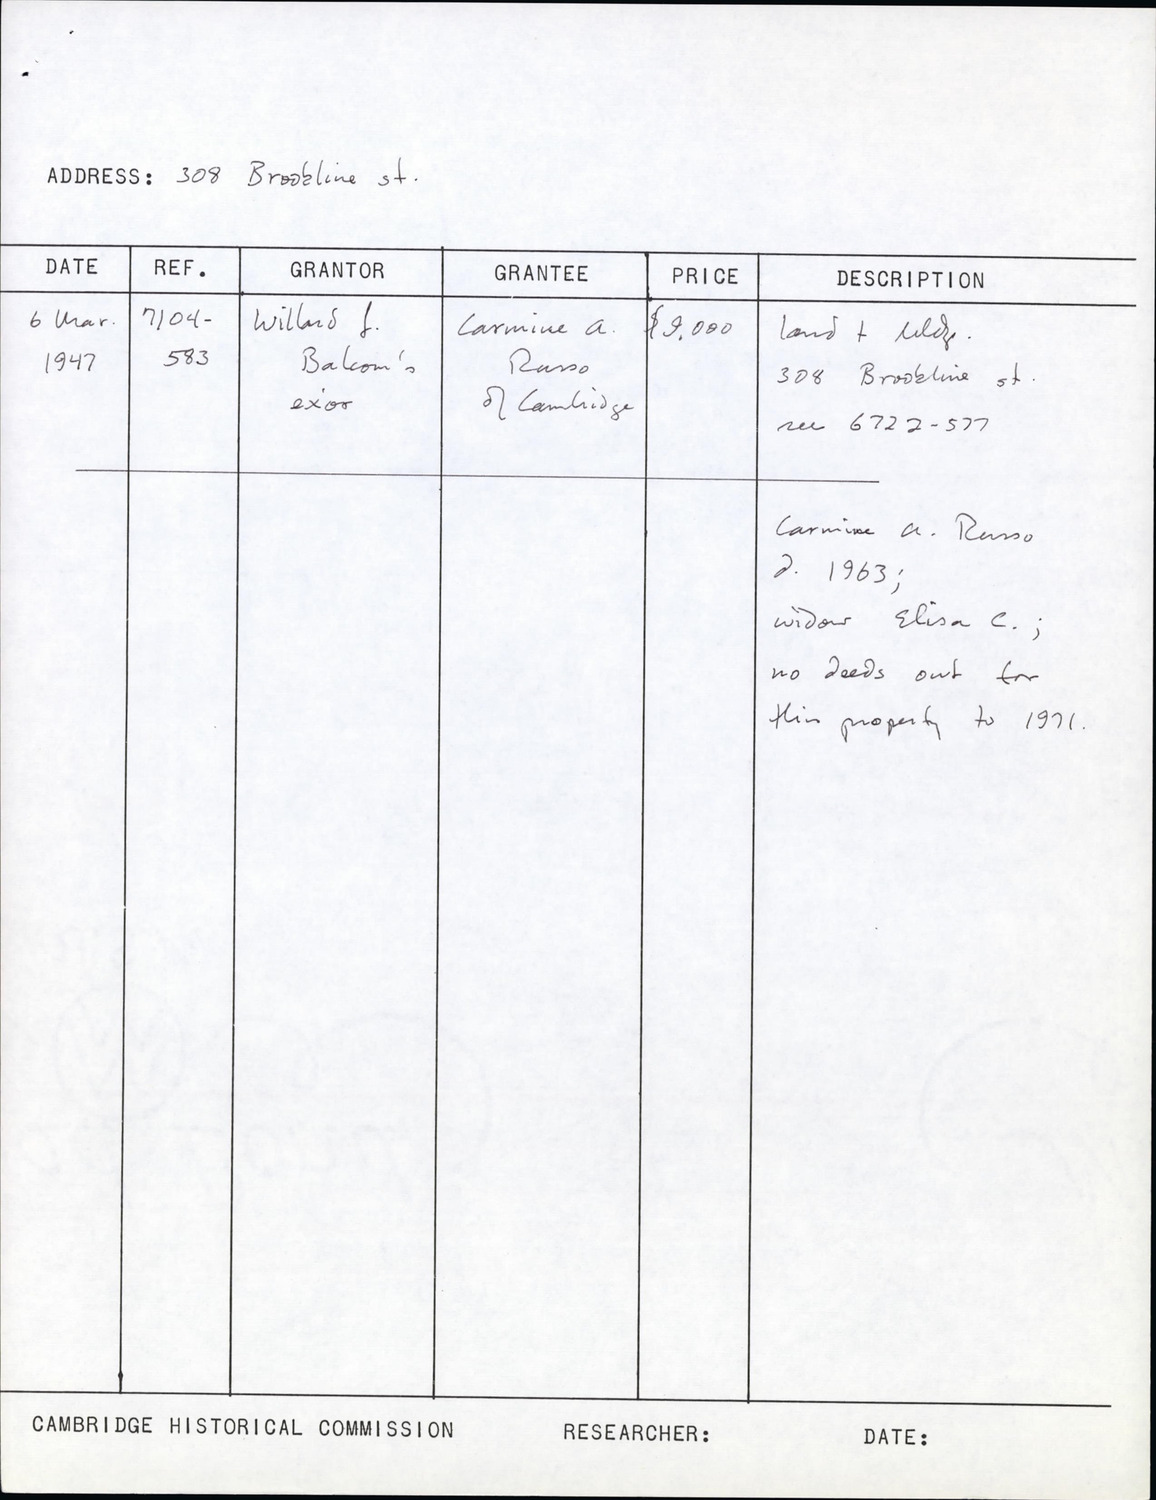 ADDRESS: 308 Brookline st.
DATE REF. GRANTOR GRANTEE PRICE DESCRIPTION
6 Mar. 7104- Willard J. Carmine A. $9,000 land + bldg.
1947 583 Balcom's Russo 308 Brookline st.
exor of Cambridge see 6722-577
Carmine A. Russo
d. 1963;
widow Elisa C.;
no deeds out for
this property to 1971.
CAMBRIDGE HISTORICAL COMMISSION RESEARCHER: DATE: